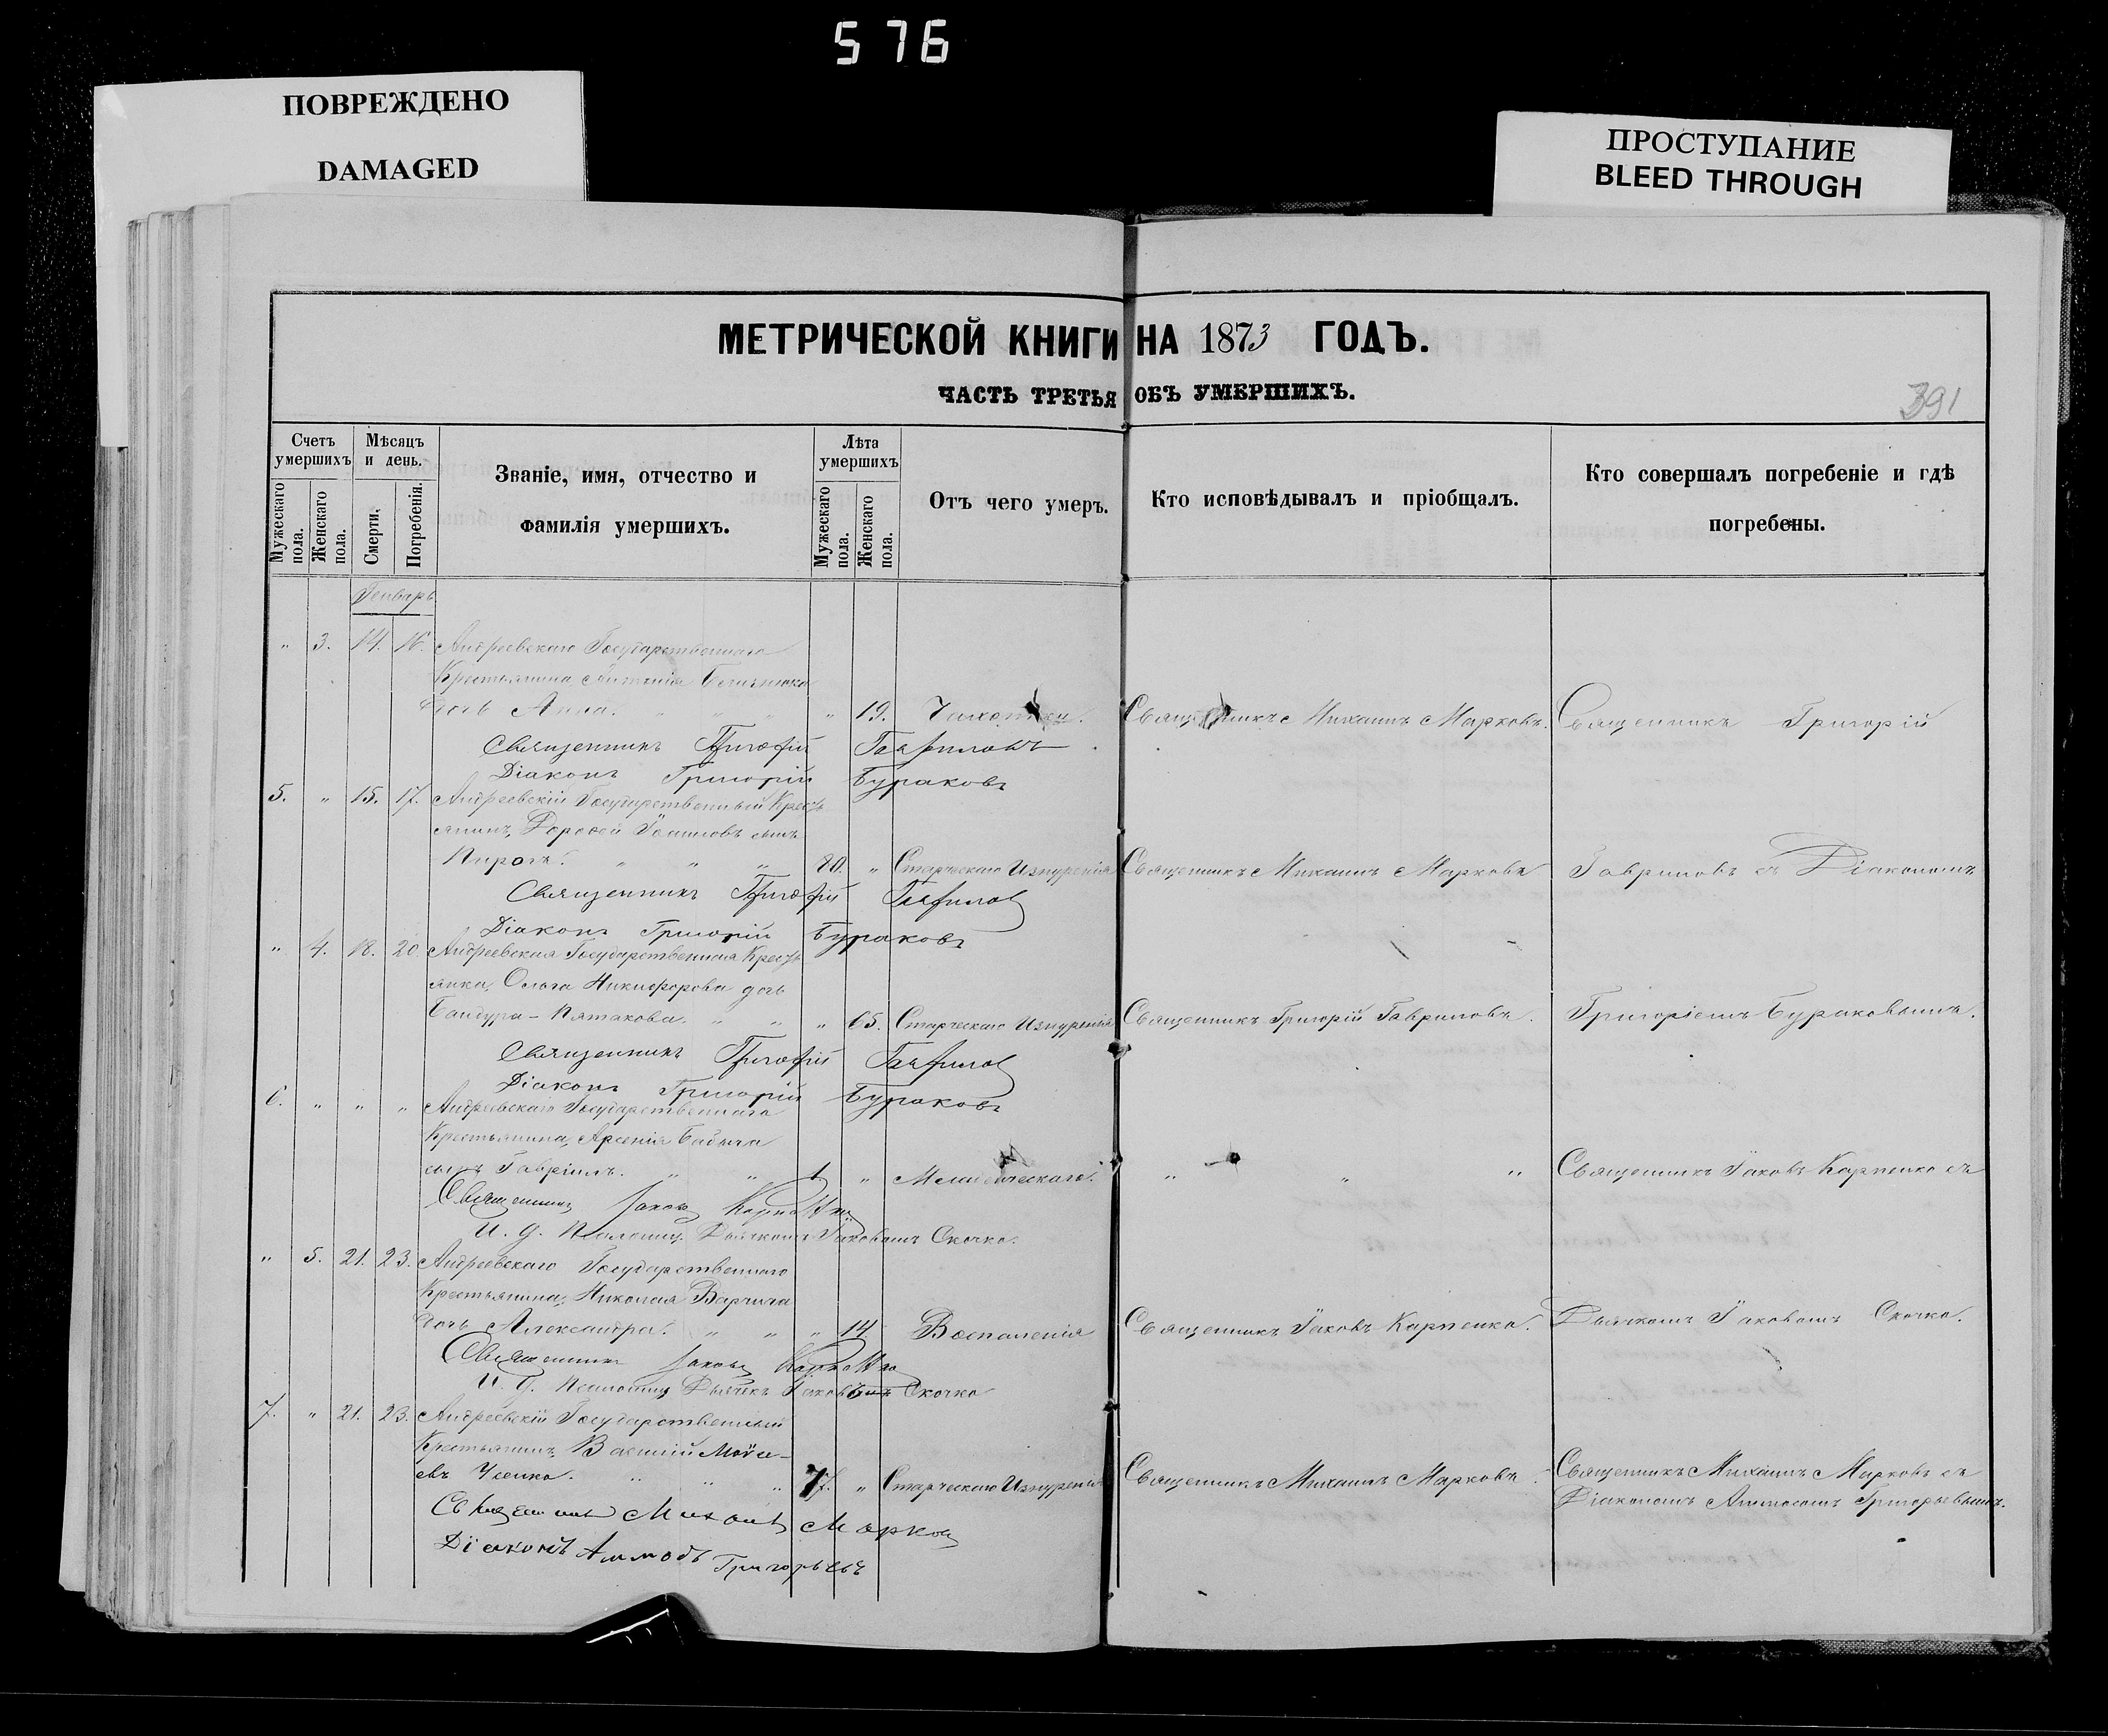 576
ПОВРЕЖДЕНО
DAMAGED
ПРОСТУПАНИЕ
BLEED THROUGH
МЕТРИЧЕСКОЙ КНИГИ НА 1873 ГОДЪ.
ЧАСТЬ ТРЕТЬЯ ОБЪ УМЕРШИХЪ.
391
Счетъ умершихъ
Мужескаго пола.
Женскаго пола.
Мѣсяцъ и день.
Смерти.
Погребенія.
Званіе, имя, отчество и
фамилія умершихъ.
Лѣта умершихъ
Мужескаго пола.
Женскаго пола.
Отъ чего умеръ.
Кто исповѣдывалъ и пріобщалъ.
Кто совершалъ погребеніе и гдѣ
погребены.
Генварь
" 3. 14. 16. Андреевскаго Государственнаго
Крестьянина
дочь Анна. " " " " 19. Чахотки. Священникъ Михаилъ Марковъ. Священникъ Григорій
Священникъ Григорій Гавриловъ
Діаконъ Григорій Бураковъ
5. " 15. 17. Андреевскій Государственный Кресть
янинъ, Дорофей сынъ
" " " 80. " Старческаго Изнуренія Священникъ Михаилъ Марковъ Гавриловъ съ Діакономъ
Священникъ Григорій Гаврилов
Діаконъ Григорій Бураковъ
" 4. 18. 20. Андреевская Государственная Кресть
янка, Ольга Никифорова дочь
Бандура-Пятакова. " " " 65. Старческаго Изнуренія Священникъ Григорій Гавриловъ. Григоріемъ Бураковымъ.
Священникъ Григорій Гаврилов
Діаконъ Григорій Бураковъ
6. " " " Андреевскаго Государственнаго
Крестьянина, Арсенія Бабича
сынъ Гавріилъ. " " 1. " " " " Священникъ Іаковъ Карпенко съ
Священникъ Іаковъ Карпенко
И. д. Псаломщ. Дьячкомъ Іаковомъ Скочко.
" 5. 21. 23. Андреевскаго Государственнаго
Крестьянина, Николая
дочь Александра. " " " 14. Воспаленія Священникъ Іаковъ Карпенко. Дьячкомъ Іаковомъ Скочко.
Священникъ Іаковъ Карпенко
И. д. Псаломщ. Дьячекъ Скочко
7. " 21. 23. Андреевскій Государственный
Крестьянинъ, Василій
евъ Усенко. " " " 77. " Старческаго Изнуренія Священникъ Михаилъ Марковъ Священникъ Михаилъ Марковъ съ
Діакономъ Григорьевымъ.
Священникъ Михаилъ Марков
Діаконъ Григорьевъ